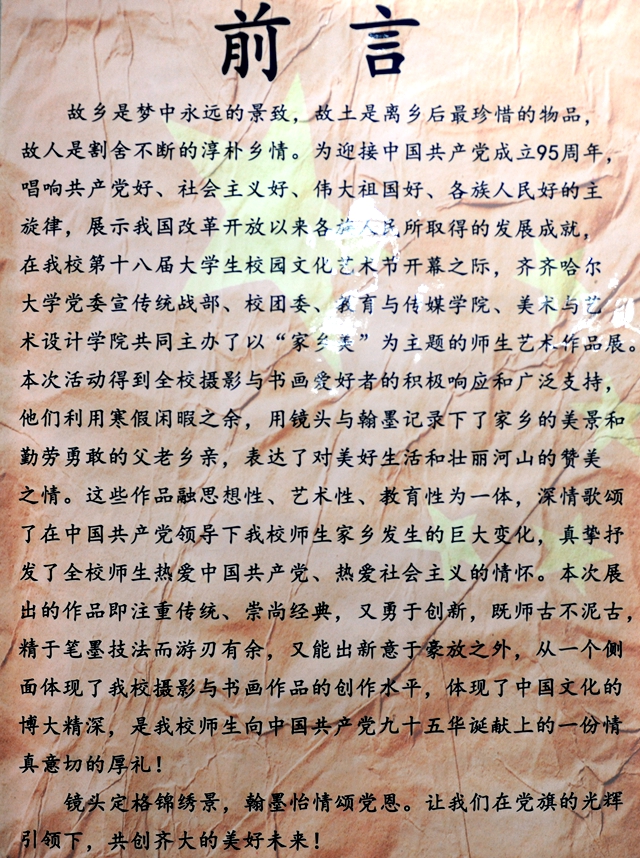 前言
故乡是梦中永远的景致，故土是离乡后最珍惜的物品，
故人是割舍不断的淳朴乡情。为迎接中国共产党成立95周年，
唱响共产党好、社会主义好、伟大祖国好、各族人民好的主
旋律，展示我国改革开放以来各族人民所取得的发展成就，
在我校第十八届大学生校园文化艺术节开幕之际，齐齐哈尔
大学党委宣传统战部、校团委、教育与传媒学院、美术与艺
术设计学院共同主办了以“家乡美”为主题的师生艺术作品展。
本次活动得到全校摄影与书画爱好者的积极响应和广泛支持，
他们利用寒假闲暇之余，用镜头与翰墨记录下了家乡的美景和
勤劳勇敢的父老乡亲，表达了对美好生活和壮丽河山的赞美
之情。这些作品融思想性、艺术性、教育性为一体，深情歌颂
了在中国共产党领导下我校师生家乡发生的巨大变化，真挚抒
发了全校师生热爱中国共产党、热爱社会主义的情怀。本次展
出的作品即注重传统、崇尚经典，又勇于创新，既师古不泥古，
精于笔墨技法而游刃有余，又能出新意于豪放之外，从一个侧
面体现了我校摄影与书画作品的创作水平，体现了中国文化的
博大精深，是我校师生向中国共产党九十五华诞献上的一份情
真意切的厚礼！
镜头定格锦绣景，翰墨怡情颂党恩。让我们在党旗的光辉
引领下，共创齐大的美好未来！